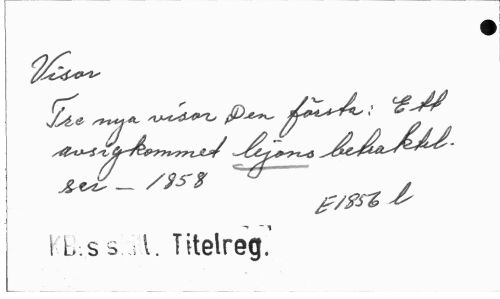 Visor
Tre nya visor Den första: Ett
avsigkommet lejons betraktel-
ser – 1858
E1856 l
KB:s s. Titelreg.